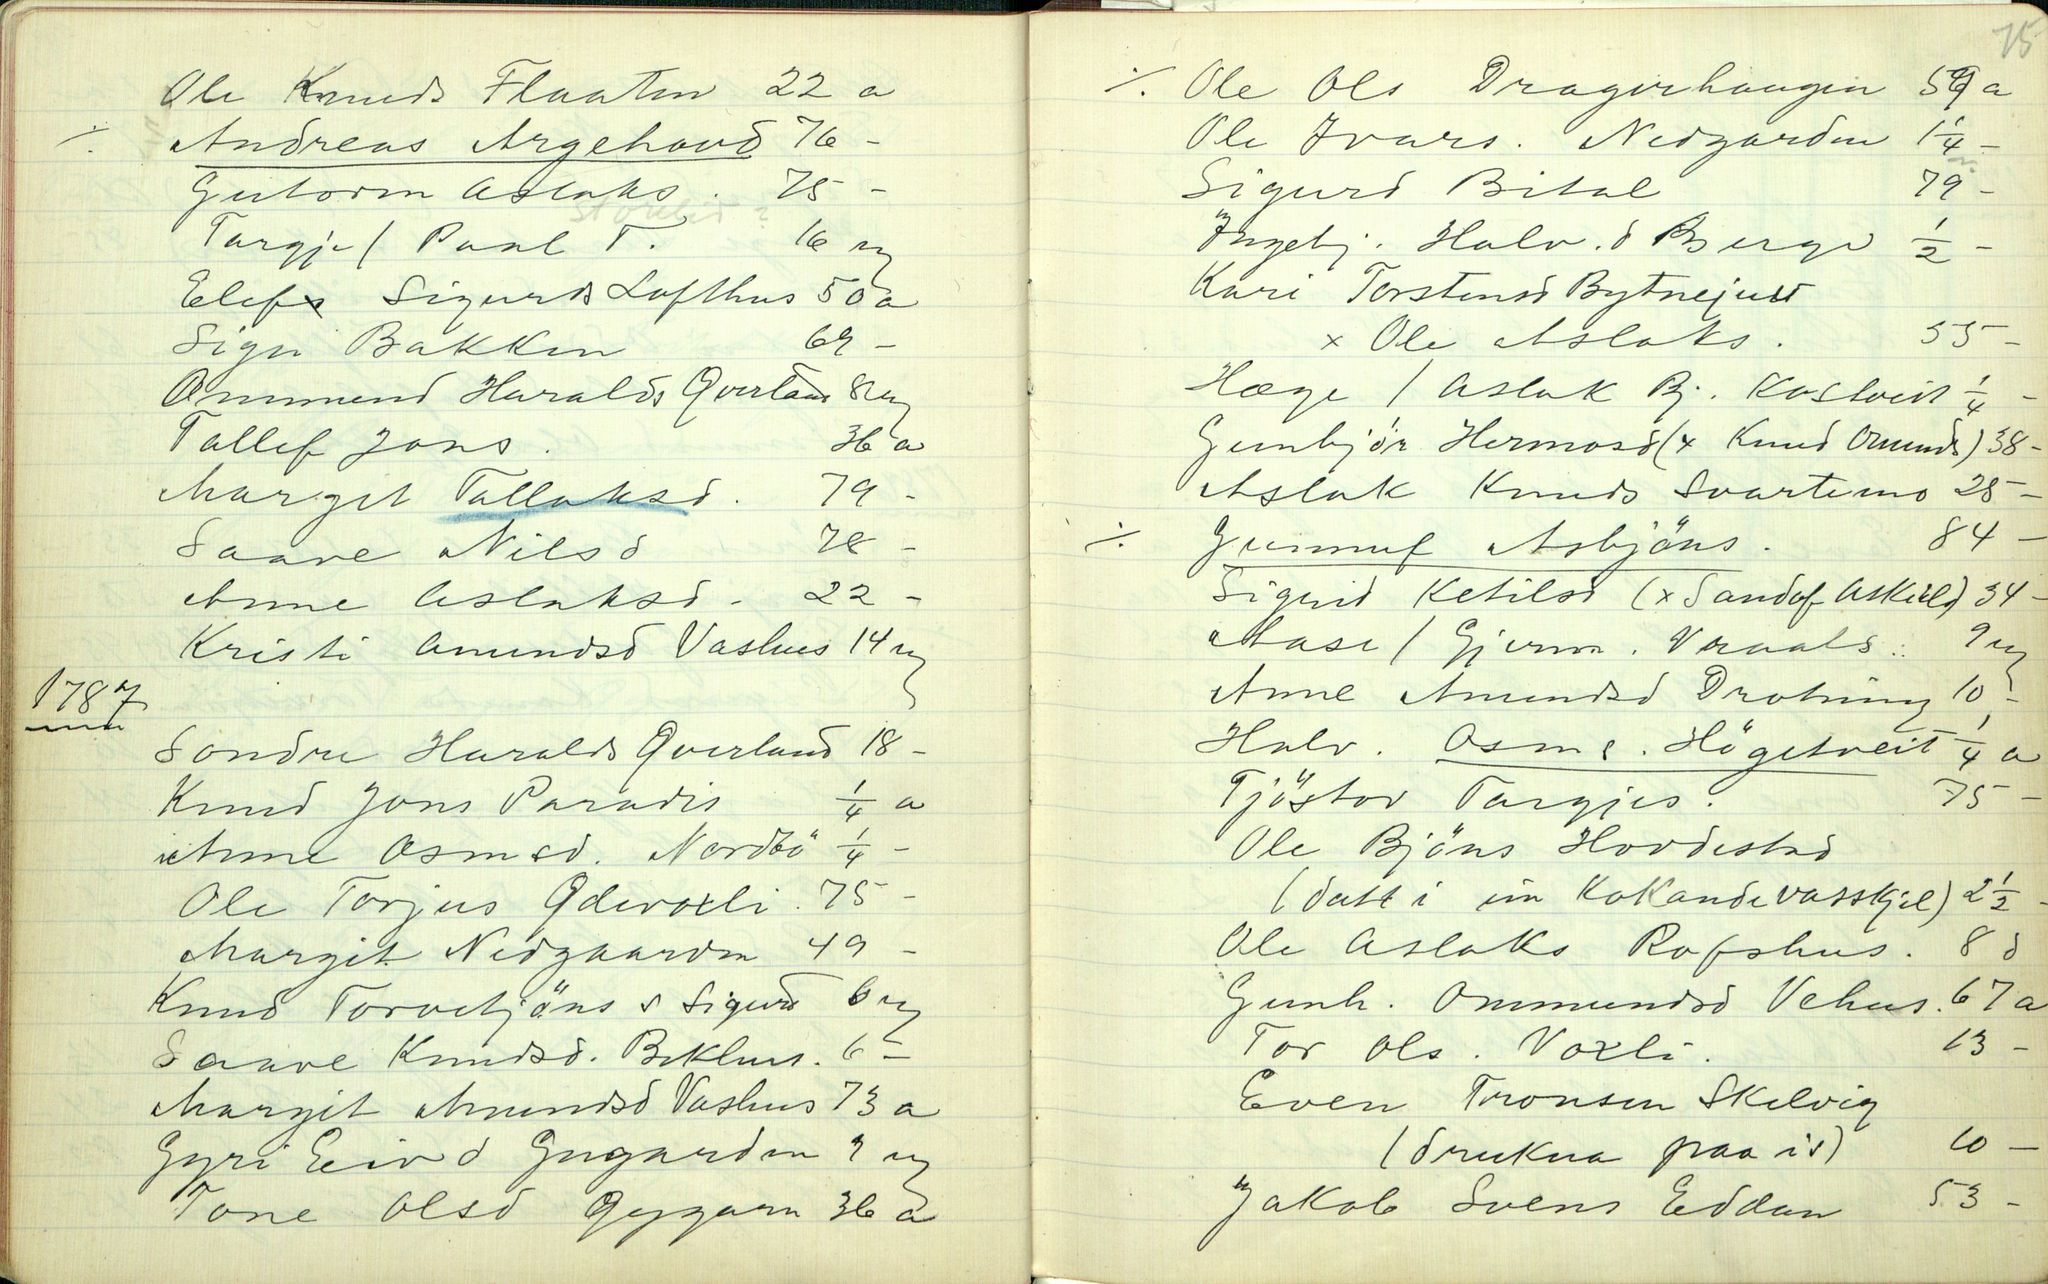 Ole Knuds Flaaten 22 a
⁒ Andreas Argehovd 76 -
Gutorm Aslaks. 75 -
Targje / Paul T. 16 u
Elefs Sigurds Lofthus 50 a
Sign Bakken 69 -
Ommund Haralds Qverland 8 u
Tallef Jons. 36 a
Margit Tallaksd. 79 -
Saave Nilsd 78 -
Anne Aslaksd - 22 -
Kristi Amundsd Vashus 14 u
1787
Sondre Haralds Qverland 18 -
Knud Jons Paradis 1/4 a
Anne Osmsd. Nordbö 1/4 -
Ole Torjus Ødevoxli. 75 -
Margit Nedgaarden 49 -
Knud Torvebjöns s Sigurd 6 u
Saave Knudsd. Bekhus. 6 -
Margit Amundsd Vashus 73 a
Gyri Eivd Gugarden 9 u
Tone Olsd Gygarn 36 a
75
⁒ Ole Ols Dragerhaugen 59 a
Ole Ivars. Nedgarden 1 1/4 -
Sigurd Bital 79 -
Ingebj. Halv.d Berge 1/2 -
Kari Torstensd Bytnejuvt
x Ole Aslaks. 55 -
Hæge / Aslak Bj. Kostveit 1/4 -
Gunbjør Hermosd (x Knud Omunds) 38 -
Aslak Knuds Svartemo 25 -
⁒ Gunnuf Asbjöns. 84 -
Sigrid Ketilsd (x Sandof Askilds) 34 -
Aase / Gjerm. Vraals. 9 u
Anne Amundsd Drotning 10 -
Halv. Osms. Högetveit 1/4 a
Tjöstov Targjes. 75 -
Ole Bjöns Hovdestad
(datt i ein kokande vasskjel) 2 1/2 -
Ole Aslaks Rofshus. 8 d
Gunh. Ommundsd Vehus. 67 a
Tor Ols. Voxli. 13 -
Even Tronsen Skelvig
(drukna paa is) 10 -
Jakob Svens Eddan 53 -